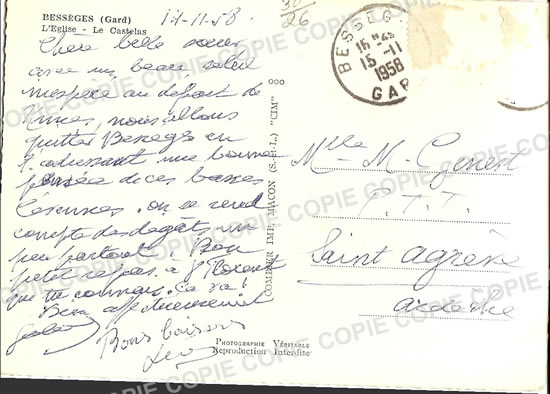 BESSÈGES (Gard)
L'Eglise - Le Castelas
14-11-58
30/26
Chère belle sœur
avec un beau soleil
inespéré au départ de
nous allons
quitter Bessèges en
t'adressant une bonne
pensée de ces basses
Cévennes. on se rend
compte des dégâts un
peu partout. Bon
petit repas à St Florent
que tu connais. Ca va!
Bien affectueusement
Bons baisers
Léo
COMBIER IMP. MACON (S.-et-L.) "CIM"
BESSEG
15-11
1958
GAR
Mlle M. Genest
P.T.T.
Saint Agrève
Ardèche
PHOTOGRAPHIE VÉRITABLE
Reproduction Interdite
COPIE COPIE COPIE COPIE